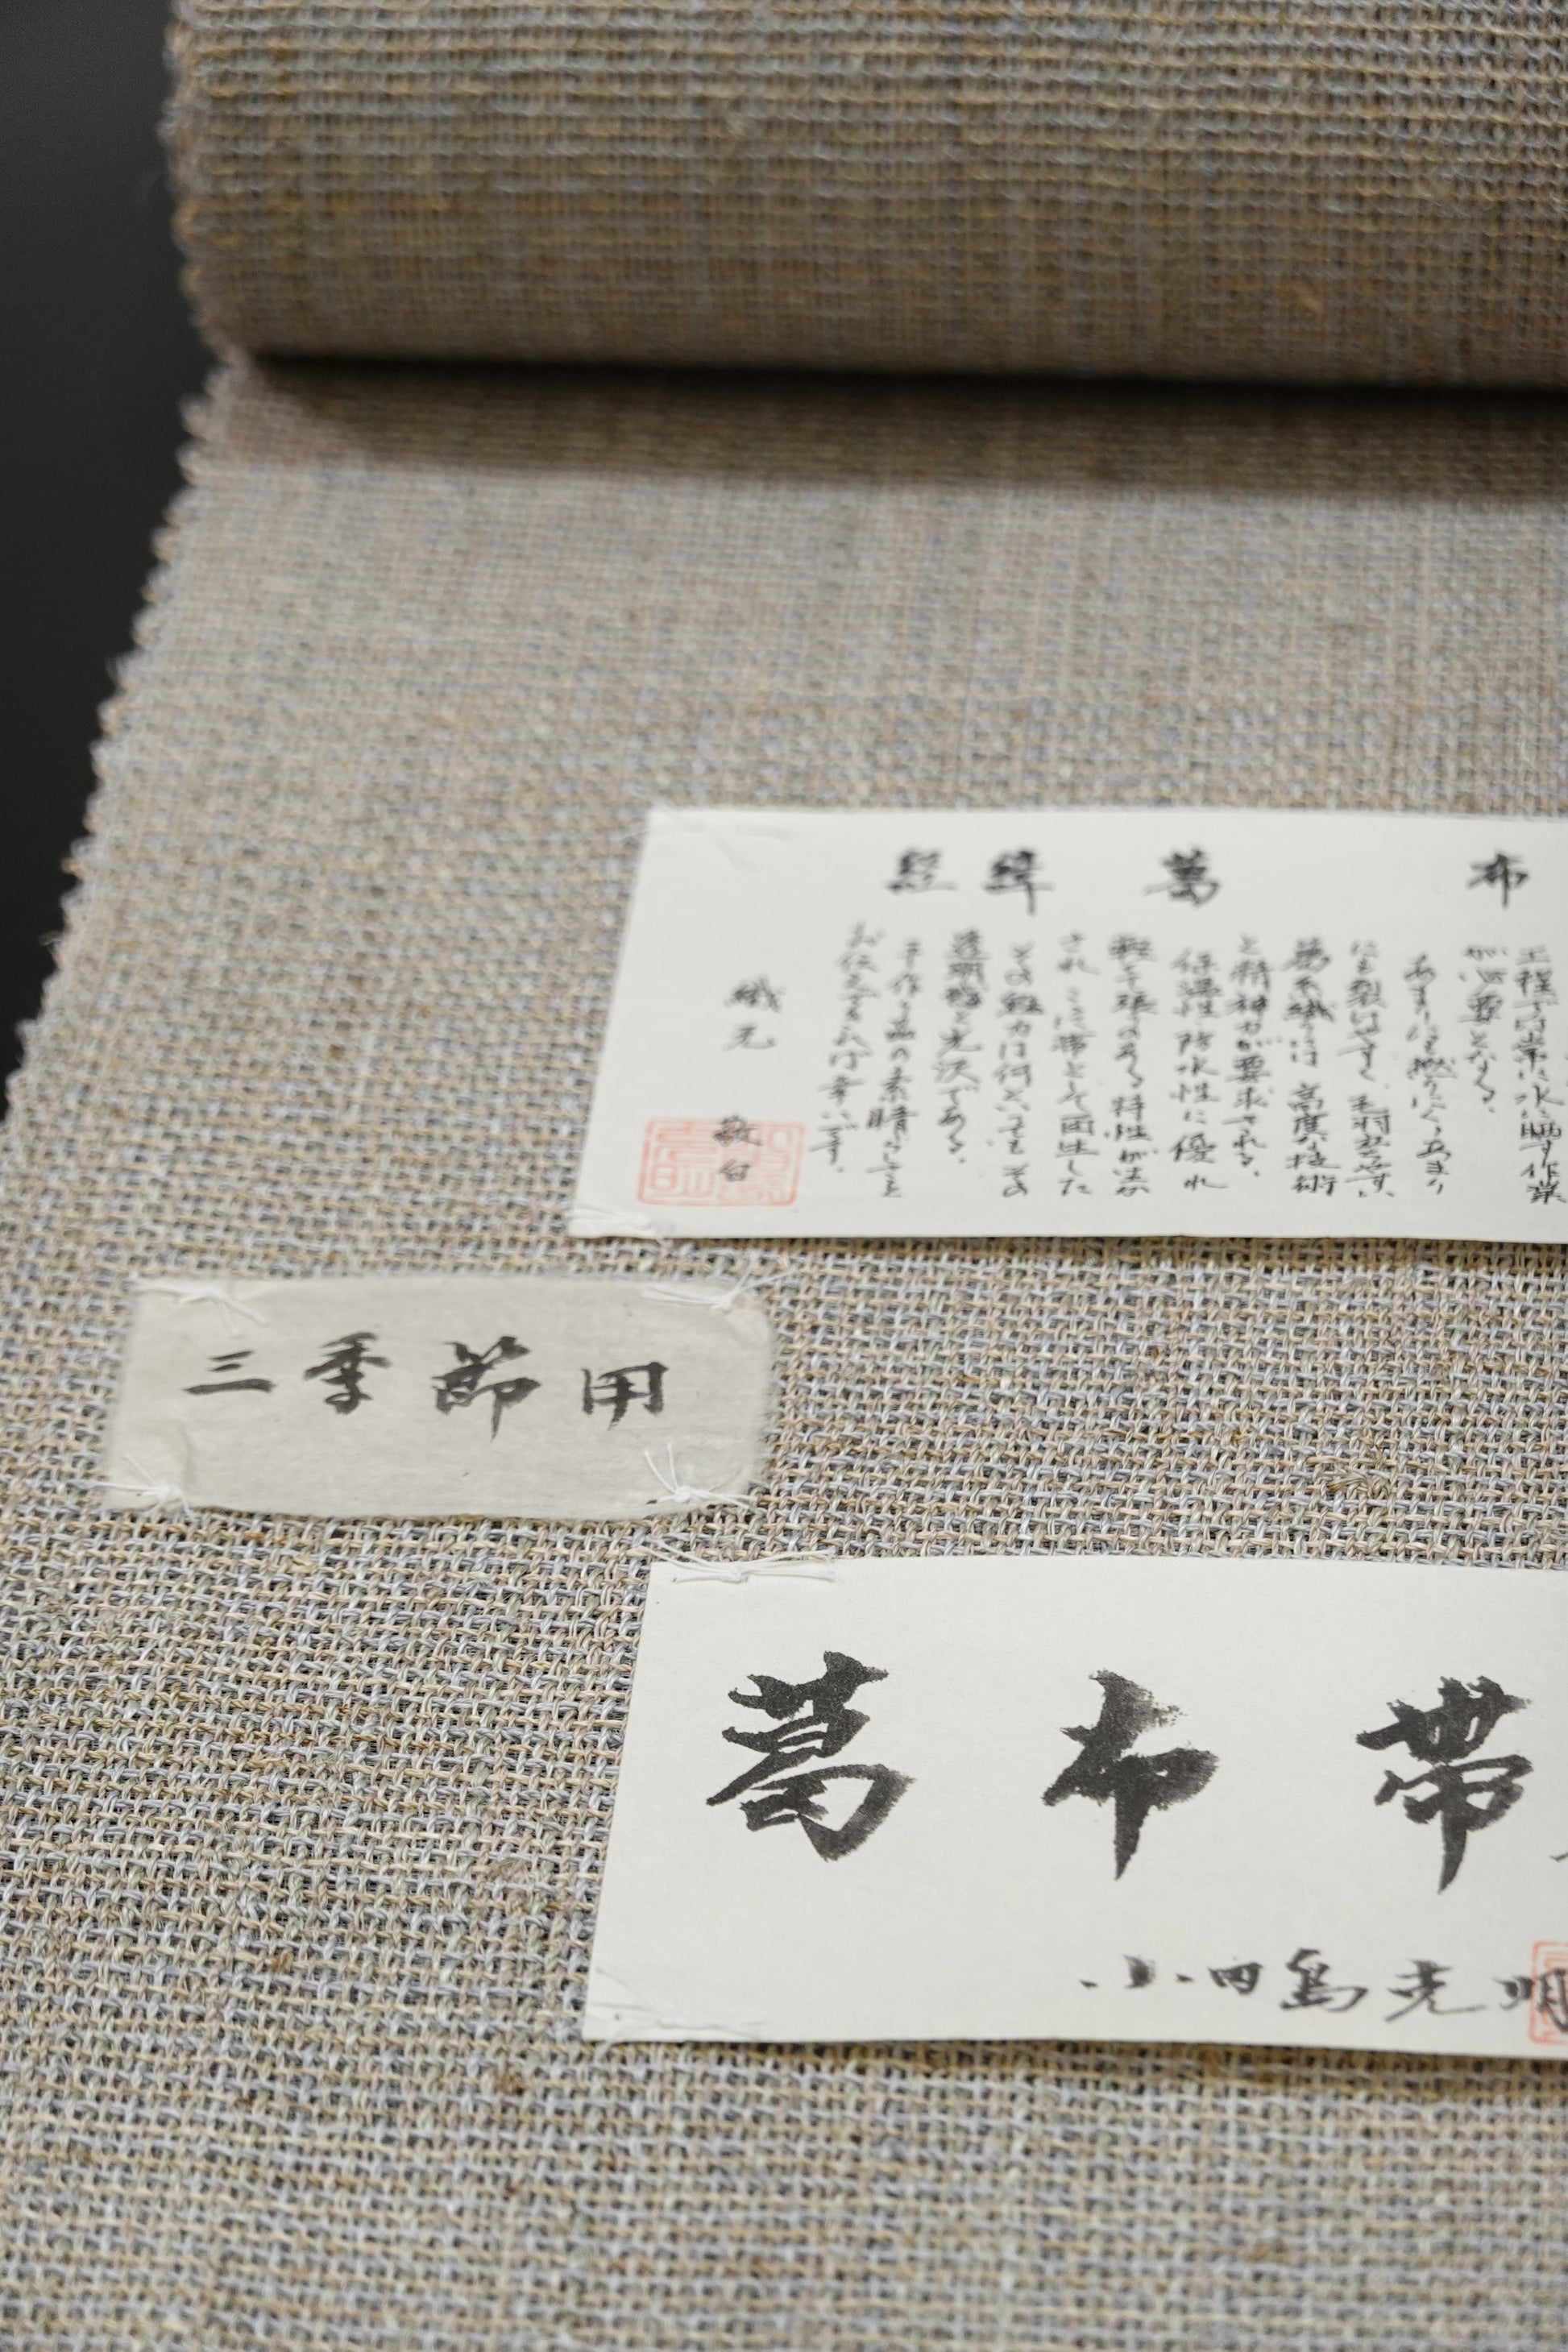 経緯葛布
工程では常に水に晒す作業
が必要となる。
にも裂けやすく
葛布織りは高度な技術
と精神力が要求される。
保湿性防水性に優れ
軽く張りのある特性が活か
され ここに帯として誕生した
その魅力は何といってもその
透明感と光沢である。
手作り品の素晴らしさを
お伝えできれば幸いです。
織元 敬白
三季節用
葛布帯
小田島克明